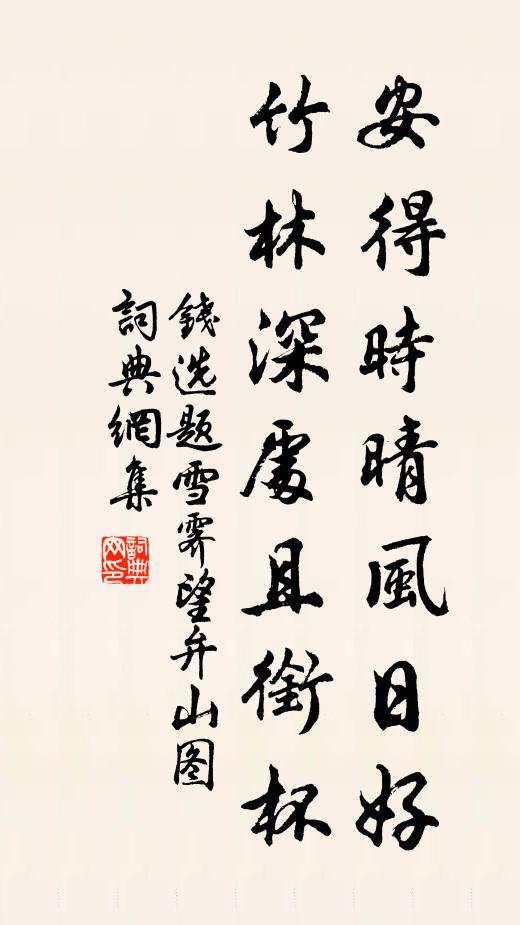 安得時晴風日好
竹林深處且銜杯
錢选题雪霁望弁山图
詞典網集
詞典网印